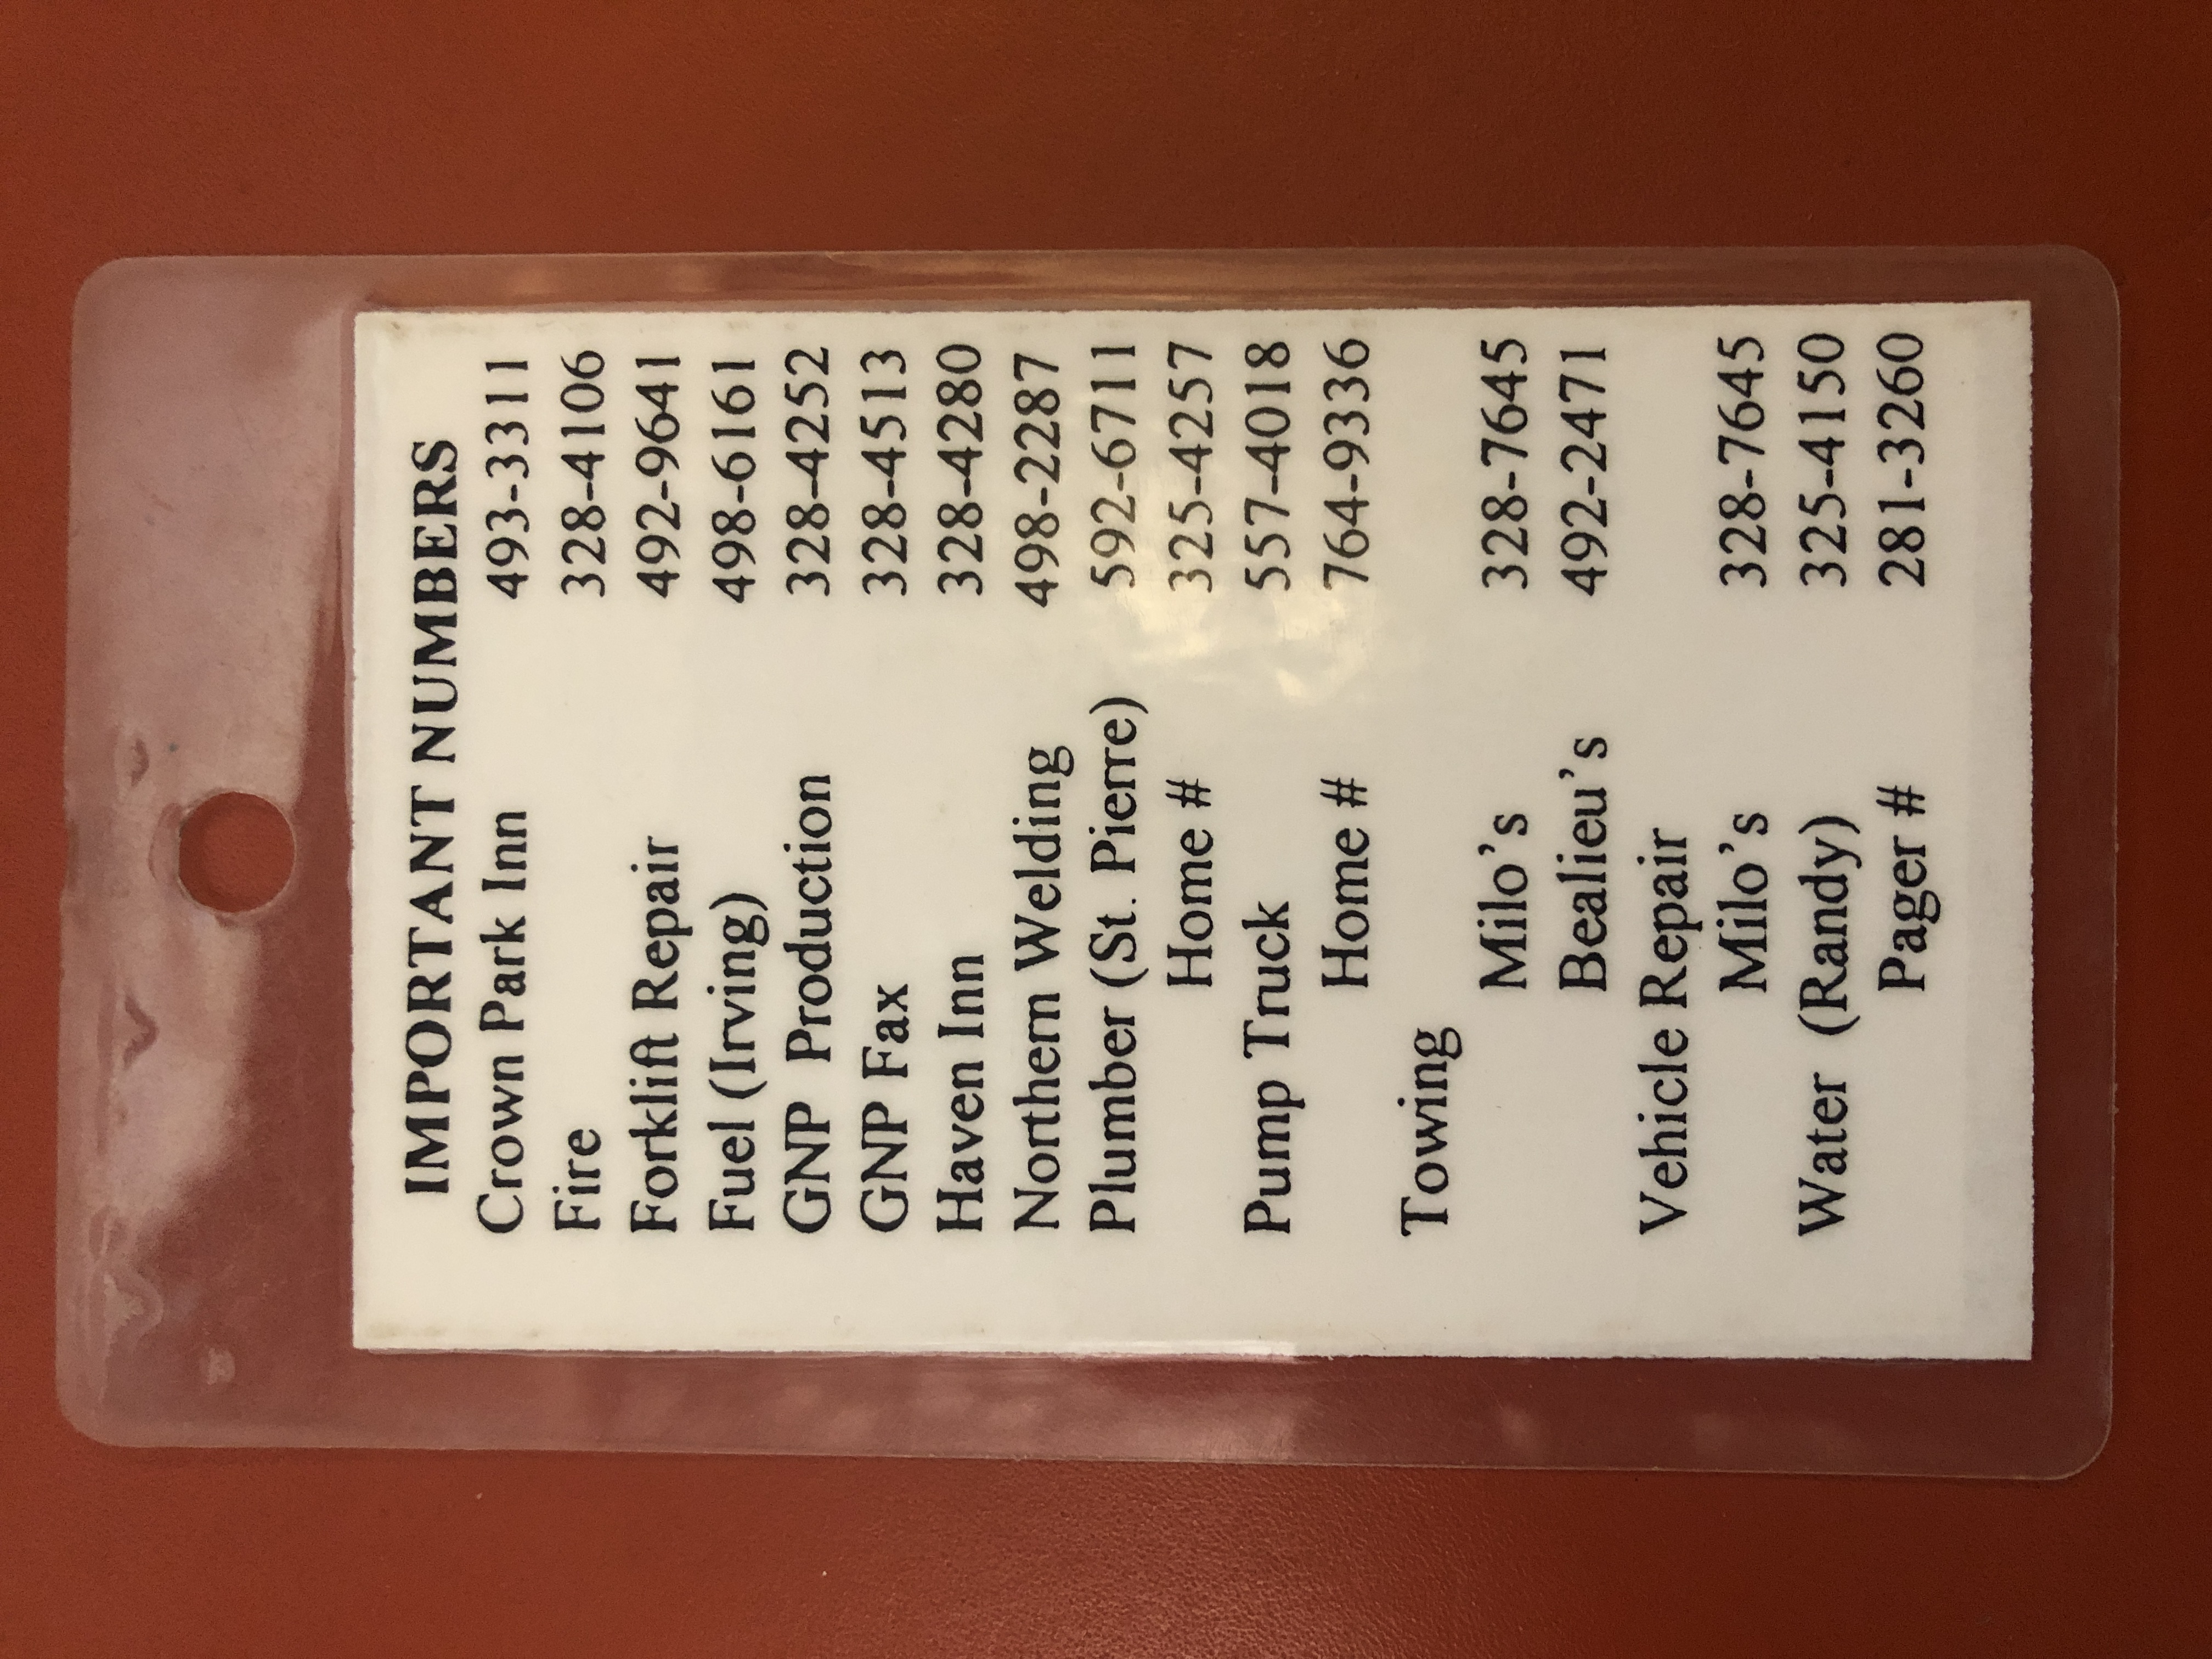 IMPORTANT NUMBERS
Crown Park Inn 493-3311
Fire 328-4106
Forklift Repair 492-9641
Fuel (Irving) 498-6161
GNP Production 328-4252
GNP Fax 328-4513
Haven Inn 328-4280
Northern Welding 498-2287
Plumber (St. Pierre) 592-6711
Home # 325-4257
Pump Truck 557-4018
Home # 764-9336
Towing
Milo's 328-7645
Bealieu's 492-2471
Vehicle Repair
Milo's 328-7645
Water (Randy) 325-4150
Pager # 281-3260